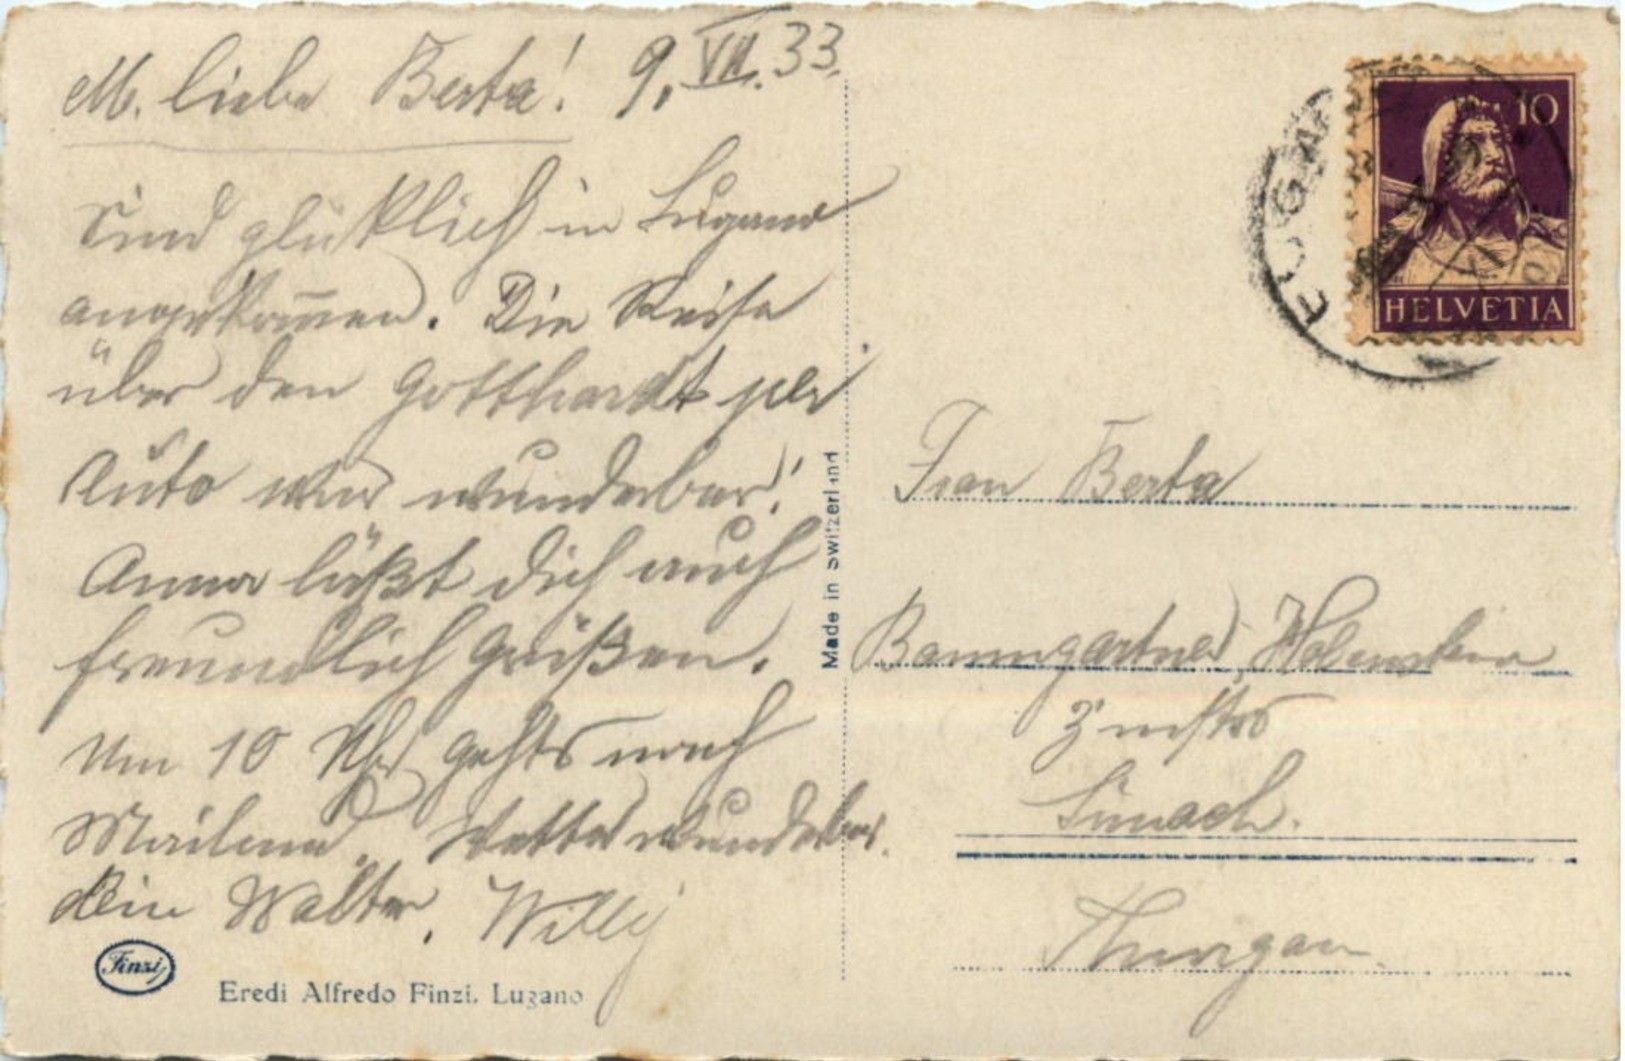 M. liebe Berta! 9. VII. 33.
Sind glüklich in Lugano
angekom̅en. Die Reise
über den Gotthardt per
Auto war wunderbar!
Anna läßt Dich auch
freundlich Grüßen.
Um 10 Uhr gehts nach
Mailand. Wetter wunderbar.
Dein Walter, Willy
Finzi
Eredi Alfredo Finzi. Lugano
Made in Switzerland
LUGANO
10
HELVETIA
Frau Berta
Baumgartner, Holenstein
Sirnach.
Thurgau.